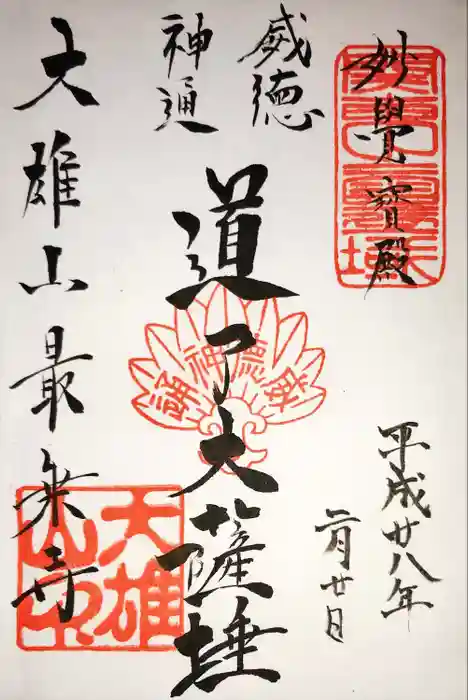 妙覺寳殿
平成廿八年
二月廿日
威徳
神通
道了大薩埵
大雄山最乗寺
威徳神通
大雄山印